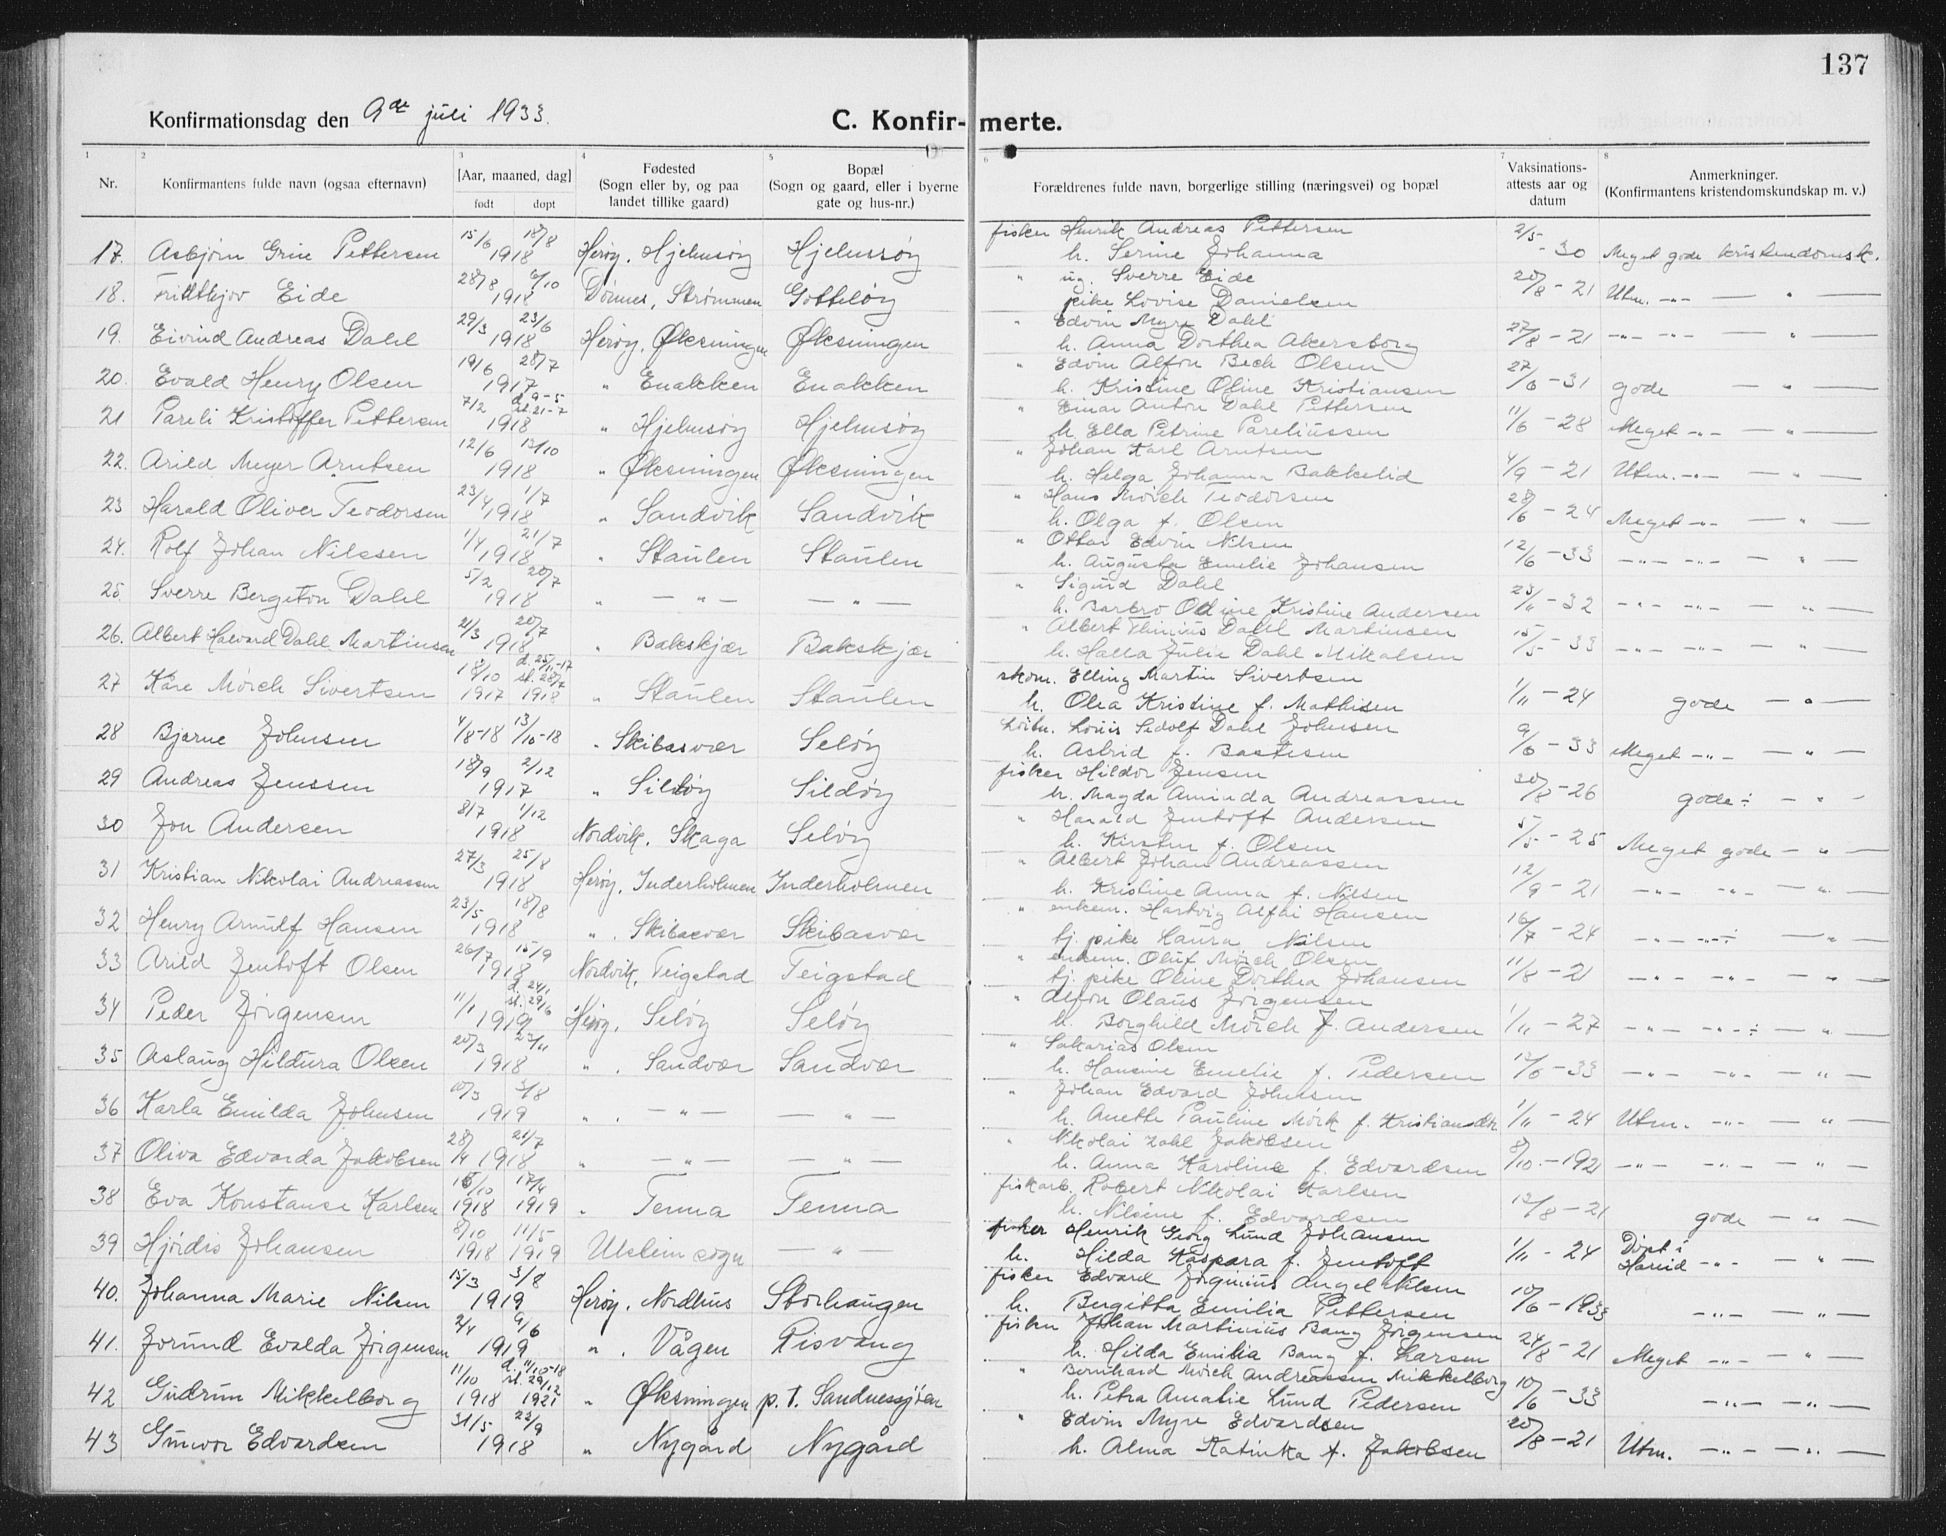 137
Konfirmationsdag den 9de juli 1933.
C. Konfirmerte.
1 2 3 4 5 6 7 8
Nr. Konfirmantens fulde navn (ogsaa efternavn) [Aar, maaned, dag] født døpt Fødested (Sogn eller by, og paa landet tillike gaard) Bopæl (Sogn og gaard, eller i byerne gate og hus-nr.) Forældrenes fulde navn, borgerlige stilling (næringsvei) og bopæl Vaksinations-attests aar og datum Anmerkninger. (Konfirmantens kristendomskundskap m. v.)
17. Asbjørn Grim Pettersen 15/6 18/8 1918 Herøy, Hjelmsøy Hjelmsøy fisker Henrik Andreas Pettersen
h. Serine Johanna 2/5 - 30 Meget gode kristendomsk.
18. Fridthjov Eide 28/8 6/10 1918 Dønnes, Strømmen Gotteløy " ug. Sverre Eide
pike Lovise Danielsen 20/8 - 21 Utm. -"- — " —
19. Eivind Andreas Dahl 29/3 23/6 1918 Herøy, Øksningen Øksningen " Edvin Myre Dahl
h. Anna Dorthea Akersborg 27/8 - 21 -"- -"- — " —
20. Evald Henry Olsen 19/6 28/7 1917 " Enakken Enakken " Edvin Alfon Bech Olsen
h. Kristine Oline Kristiansen 27/6 - 31 gode — " —
21 Pareli Kristoffer Pettersen 7/2 d. 9-5 st. 21-7 1918 " Hjelmsøy Hjelmsøy " Einar Anton Dahl Pettersen
h. Ella Petrine Pareliussen 11/6 - 28 Meget -"- — " —
22. Arild Meyer Arntsen 12/6 13/10 1918 " Øksningen Øksningen " Johan Karl Arntsen
h. Helga Johanna Bakkelid 4/9 - 21 Utm. -"- — " —
23 Harald Oliver Teodorsen 23/4 1/7 1918 " Sandvik Sandvik " Hans Mörch Teodorsen
h. Olga f. Olsen 28/6 - 24 Meget -"- — " —
24. Rolf Johan Nilssen 1/4 21/7 1918 " Staulen Staulen " Ottar Edvin Nilsen
h. Augusta Emelie Johansen 12/6 - 33 -"- -"- — " —
25. Sverre Bergeton Dahl 5/2 20/7 1918 " — " — — " — " Sigurd Dahl
h. Barbro Odine Kristine Andersen 23/11 - 32 -"- -"- — " —
26. Albert Halvard Dahl Martinsen 21/3 20/7 1918 " Bakskjær Bakskjær " Albert Thinius Dahl Martinsen
h. Halla Julie Dahl Mikalsen 15/5 - 33 -"- -"- — " —
27 Kåre Mörch Sivertsen 18/10 1917 d. 25/11-17 st. 28/7 1918 " Staulen Staulen skom. Elling Martin Sivertsen
h. Olea Kristine f. Mathisen 1/11 - 24 gode — " —
28 Bjarne Johnsen 4/8-18 13/10-18 " Skibasvær Seløy Louis Sedolf Dahl Johnsen
h. Astrid f. Bastesen 9/6 - 33 Meget -"- — " —
29 Andreas Jenssen 18/9 2/12 1917 " Sildøy Sildøy fisker Hildor Jensen
h. Magda Aminda Andreassen 30/8 - 26 gode ÷ — " —
30 Jon Andersen 8/7 1/12 1918 Nordvik, Skaga Seløy " Harald Jentoft Andersen
h. Kirsten f. Olsen 5/5 - 25 Meget gode — " —
31 Kristian Nikolai Andreassen 27/3 25/8 1918 Herøy, Inderholmen Inderholmen " Albert Johan Andreassen
h. Kristine Anna f. Nilsen 12/9 - 21 -"- -"- — " —
32 Henry Arnulf Hansen 23/5 18/8 1918 " Skibasvær Skibasvær " enkem. Hartvig Alfai Hansen
tj. pike Laura Nilsen 16/7 - 24 -"- -"- ÷ — " —
33 Arild Jentoft Olsen 26/7 15/9 1918 Nordvik, Teigstad Teigstad " enkem. Oluf Mörch Olsen
tj. pike Oline Dorthea Johansen 11/8 - 21 -"- -"- — " —
34 Peder Jörgensen 11/1 d. 24/1 st. 29/6 1919 Herøy, Seløy Seløy " Alfon Olaus Jörgensen
h. Borghild Mörch f. Andersen 1/11 - 27 -"- -"- ÷ — " —
35 Aslaug Hildura Olsen 20/3 23/11 1918 " Sandvær Sandvær " Sakarias Olsen
h. Hansine Emelie f. Pedersen 12/6 - 33 -"- -"- — " —
36 Karla Emilda Johnsen 10/3 3/8 1919 " — " — — " — " Johan Edvard Johnsen
h. Anette Pauline Mörk f. Kristiansdtr 1/11 - 24 Utm. -"- — " —
37 Oliva Edvarda Jakobsen 28/4 21/7 1918 " — " — — " — " Nikolai Zahl Jakobsen
h. Anna Karoline f. Edvardsen 8/10 - 1921 -"- -"- — " —
38 Eva Konstanse Karlsen 16/10 1918 17/4 1919 " Tenna Tenna fiskarb. Robert Nikolai Karlsen
h. Nilsine f. Edvardsen 12/8 - 21 gode — " —
39 Hjördis Johansen 8/10 1918 11/5 1919 Ulstein sogn — " — fisker Henrik Georg Lund Johansen
h. Hilda Kaspara f. Jentoft 1/11 - 24 Döpt i Hareid -"- — " —
40. Johanna Marie Nilsen 15/3 3/8 1919 Herøy, Nordhus Storhaugen fisker Edvard Jörginius Angel Nilsen
h. Bergitta Emilia Pettersen 10/6 - 1933 -"- — " —
41. Jorund Evalda Jörgensen 2/4 9/6 1919 " Vågen Risvang fisker Johan Martinius Bang Jörgensen
h. Hilda Emilia Bang f. Larsen 24/8 - 21 Meget -"- — " —
42 Gudrun Mikkelborg 11/10 1918 d. 11/10-18 st. 29/12 1921 " Øksningen p. t. Sandnessjöen " Bernhard Mörch Andreassen Mikkelborg
h. Petra Amalie Lund Pedersen 10/6 - 33 -"- — " —
43 Gunvor Edvardsen 31/5 22/9 1918 " Nygård Nygård " Edvin Myre Edvardsen
h. Alma Katinka f. Jakobsen 20/8 - 21 Utm. -"- — " —